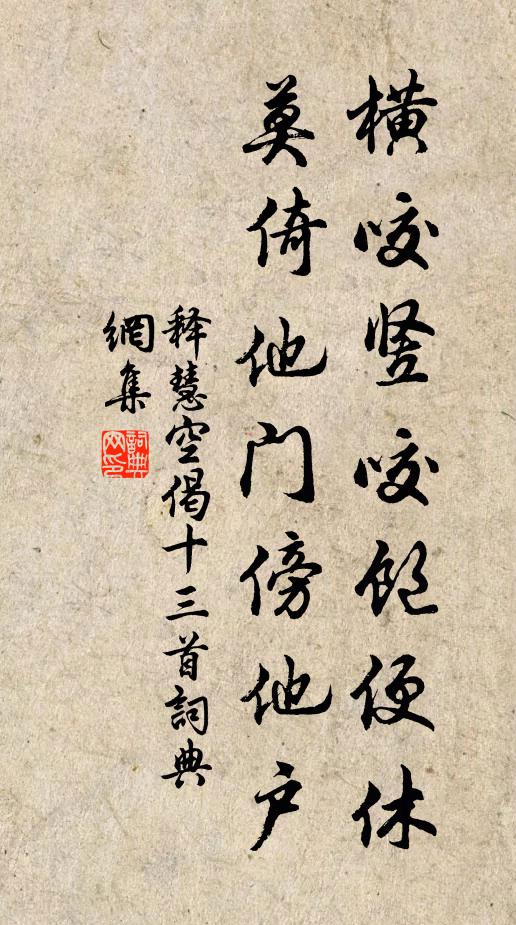 横咬竖咬饱便休
莫倚他门傍他户
释慧空偈十三首詞典
網集
詞典
网印